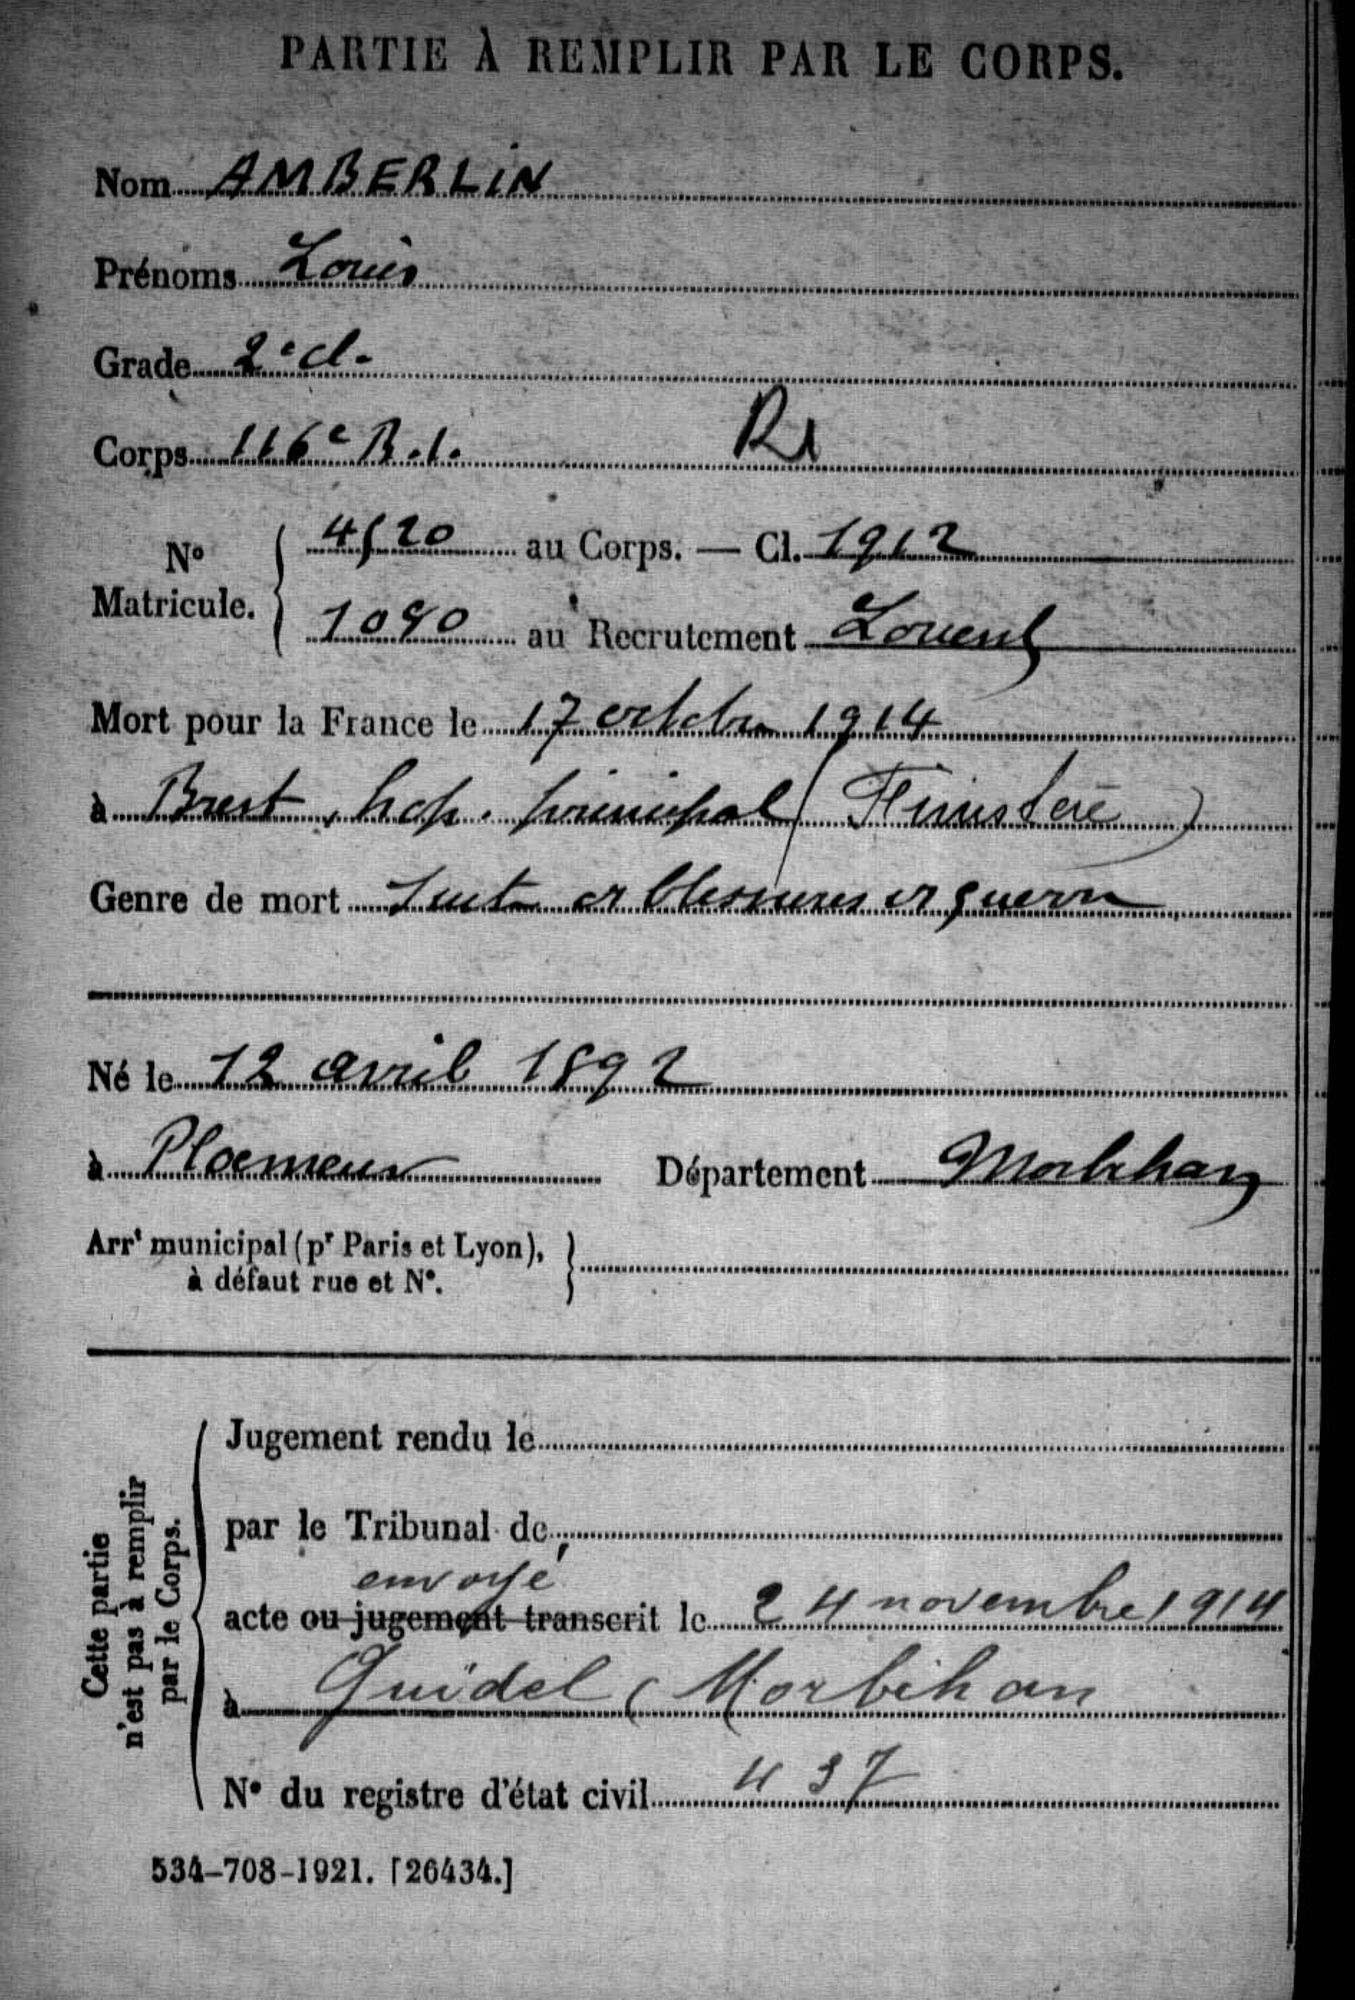 PARTIE À REMPLIR PAR LE CORPS.
Nom AMBERLIN
Prénoms Louis
Grade 2e cl.
Corps 116e R.I.
N° Matricule. 4520 au Corps. — Cl. 1912
1090 au Recrutement Lorient
Mort pour la France le 17 octobre 1914
à Brest, hop. principal (Finistère)
Genre de mort Suite de blessures de guerre
Né le 12 avril 1892
à Ploemeur Département Morbihan
Arrt municipal (pr Paris et Lyon),
à défaut rue et N°.
Cette partie
n'est pas à remplir
par le Corps.
Jugement rendu le
par le Tribunal de
envoyé
acte ou jugement transcrit le 24 novembre 1914
à Guidel (Morbihan
N° du registre d'état civil 437
534-708-1921. [26434.]